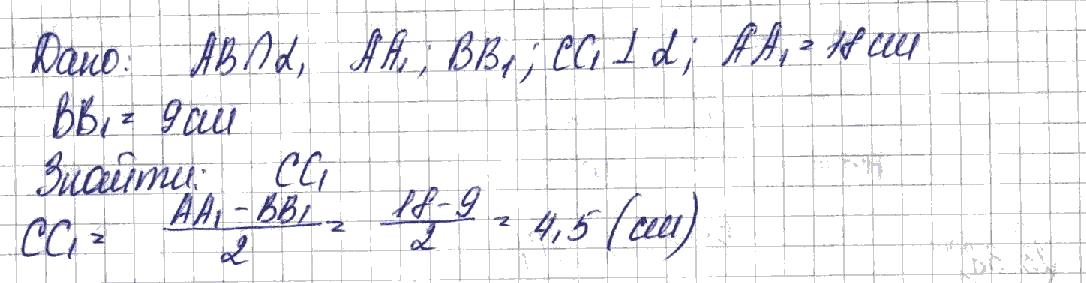 Дано: AB∩α, AA₁; BB₁; CC₁ ⊥ α; AA₁ = 18 см
BB₁ = 9 см
Знайти: CC₁
CC₁ = (AA₁ - BB₁)/2 = (18 - 9)/2 = 4,5 (см)